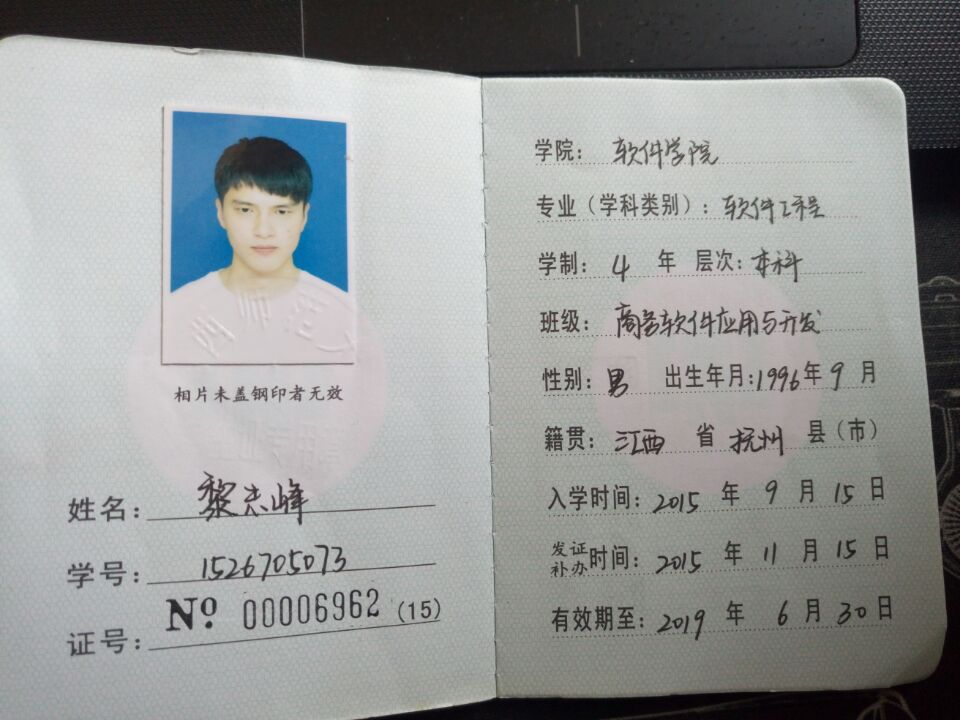 相片未盖钢印者无效
姓名：黎志峰
学号：1526705073
证号：№ 00006962 (15)
学院：软件学院
专业（学科类别）：软件工程
学制：4 年 层次：本科
班级：商务软件应用与开发
性别：男 出生年月：1996年9月
籍贯：江西 省 抚州 县（市）
入学时间：2015 年 9 月 15 日
发证补办时间：2015 年 11 月 15 日
有效期至：2019 年 6 月 30 日